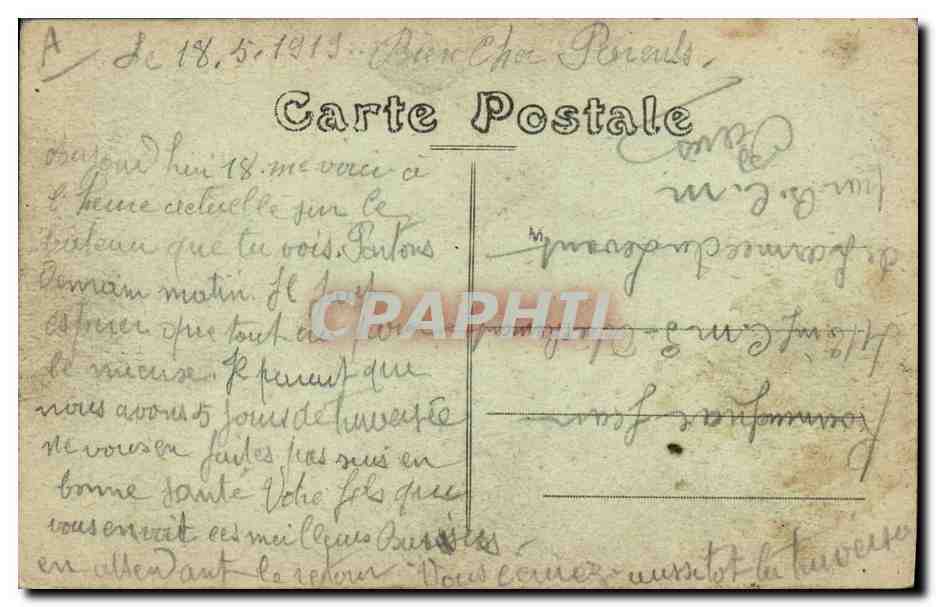 A
Le 18.5.1919. Bien Cher Parents.
Carte Postale
hui 18. me voici à
l'heure actuelle sur le
bateau que tu vois. Partons
Demain matin. Il faut
que tout
le mieuse. Il parait que
nous avons 5 jours de traversée
ne vous en faites pas suis en
bonne santé Votre fils qui
vous envoit ces meilleurs
en attendant le retour. Vous aussitot la traversé
CPARAPHIL
Paris
par B.C.M
de l'armée du Levant
C.M. 3
Jean